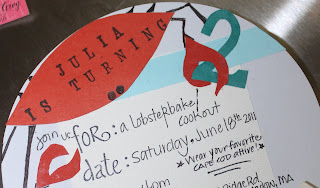 JULIA
IS TURNING
2
join us
for: a lobsterbake
cookout
date: saturday. June 18th 2011
*Wear your favorite
CAPE COD attire!*
Ridge Rd.
MA